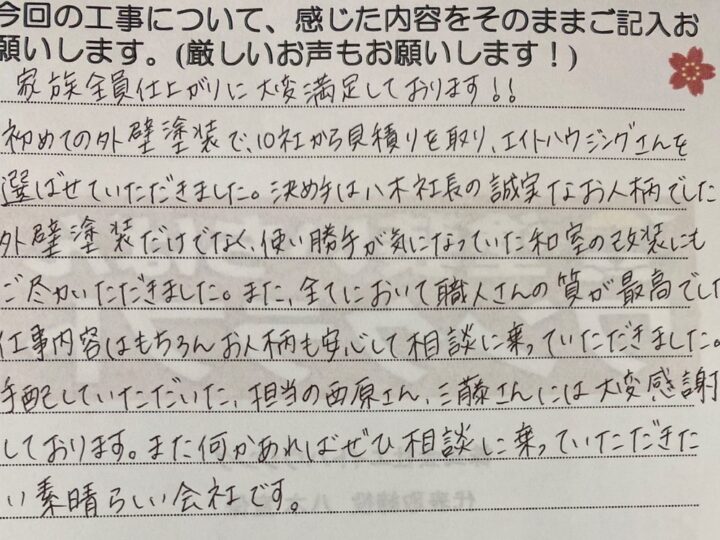 今回の工事について、感じた内容をそのままご記入お
願いします。(厳しいお声もお願いします！)
家族全員仕上がりに大変満足しております!!
初めての外壁塗装で、10社から見積りを取り、エイトハウジングさんを
選ばせていただきました。決め手は八木社長の誠実なお人柄でした
外壁塗装だけでなく、使い勝手が気になっていた和室の改装にも
ご尽力いただきました。また、全てにおいて職人さんの質が最高でした
仕事内容はもちろんお人柄も安心して相談に乗っていただきました。
手配していただいた、担当の西原さん、三藤さんには大変感謝
しております。また何かあればぜひ相談に乗っていただきた
い素晴らしい会社です。